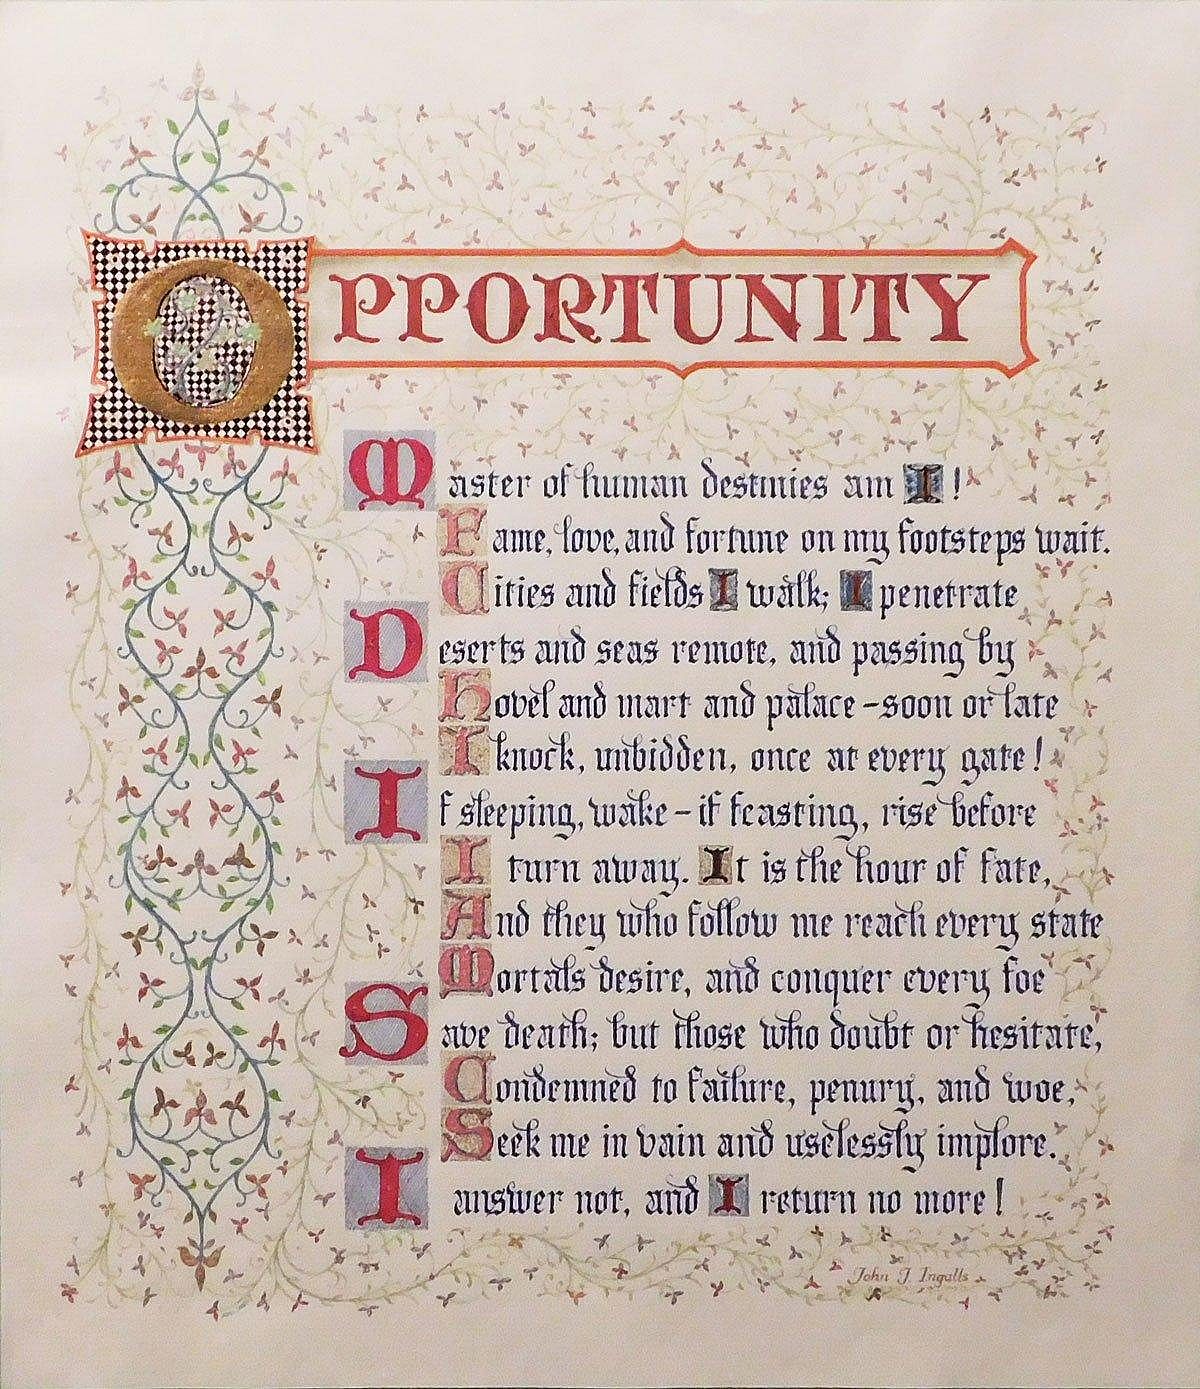 OPPORTUNITY
Master of human destinies am I!
Fame, love, and fortune on my footsteps wait.
Cities and fields I walk; I penetrate
Deserts and seas remote, and passing by
Hovel and mart and palace - soon or late
I knock, unbidden, once at every gate!
If sleeping, wake - if feasting, rise before
I turn away. It is the hour of fate,
And they who follow me reach every state
Mortals desire, and conquer every foe
Save death; but those who doubt or hesitate,
Condemned to failure, penury, and woe,
Seek me in vain and uselessly implore.
I answer not, and I return no more!
John J. Ingalls